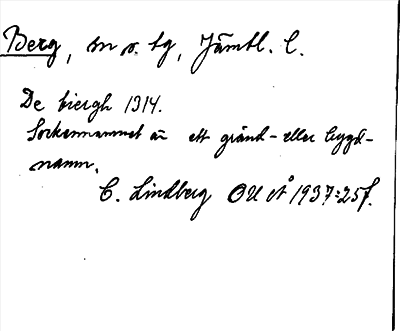 Berg, sn o. tg, Jämtl. l.
De biergh 1314.
Sockennamnet är ett gränd- eller bygd-
namn.
C. Lindberg OUÅ 1937: 25 f.